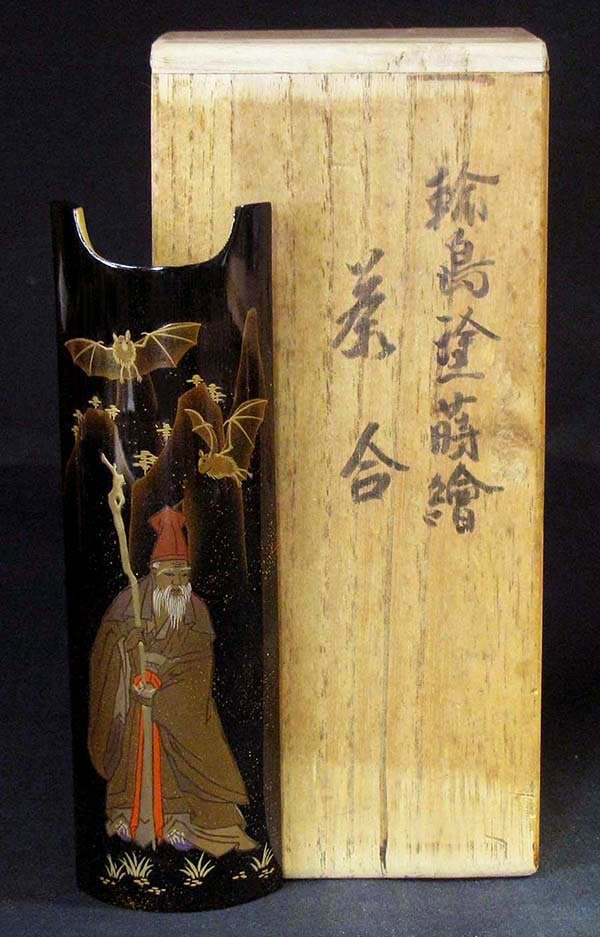 輪島塗蒔繪
茶合